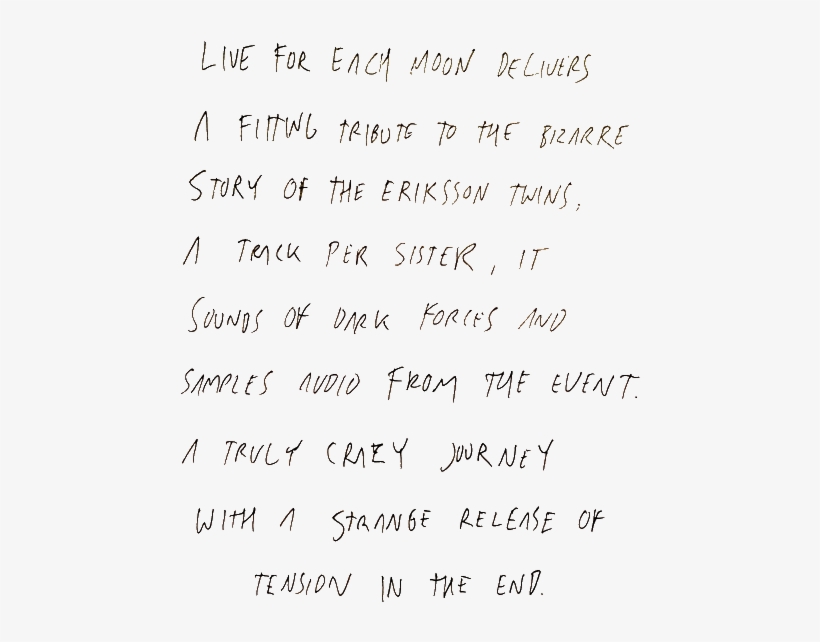 LIVE FOR EACH MOON DELIVERS
A FITTING TRIBUTE TO THE BIZARRE
STORY OF THE ERIKSSON TWINS,
A TRACK PER SISTER, IT
SOUNDS OF DARK FORCES AND
SAMPLES AUDIO FROM THE EVENT.
A TRULY CRAZY JOURNEY
WITH A STRANGE RELEASE OF
TENSION IN THE END.